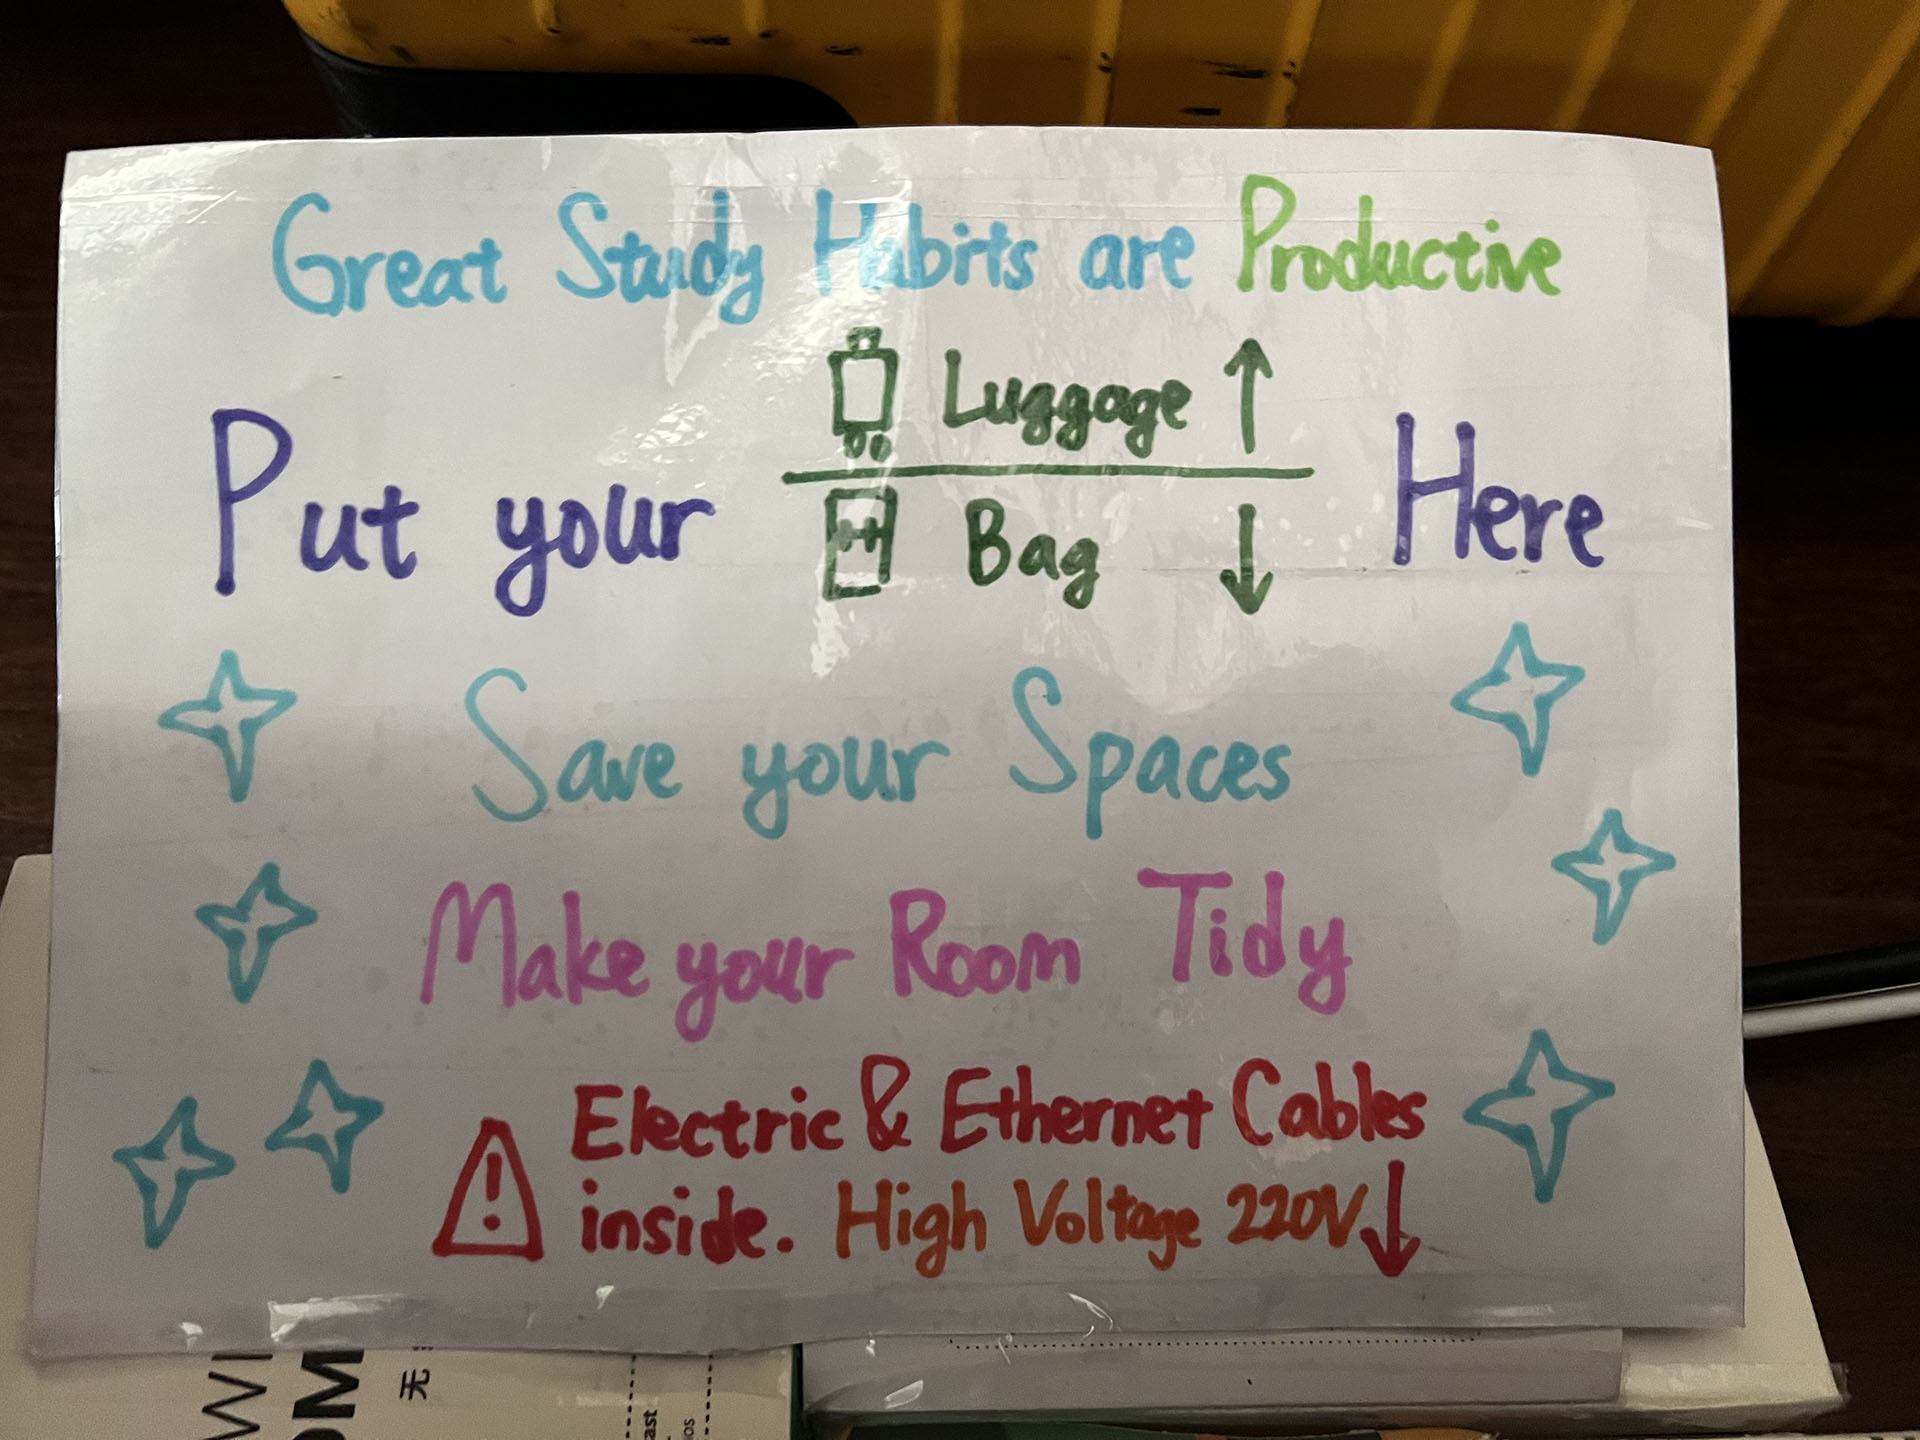 Great Study Habits are Productive
Put your Luggage ↑ Here
Bag ↓
Save your Spaces
Make your Room Tidy
Electric & Ethernet Cables
inside. High Voltage 220V ↓
无